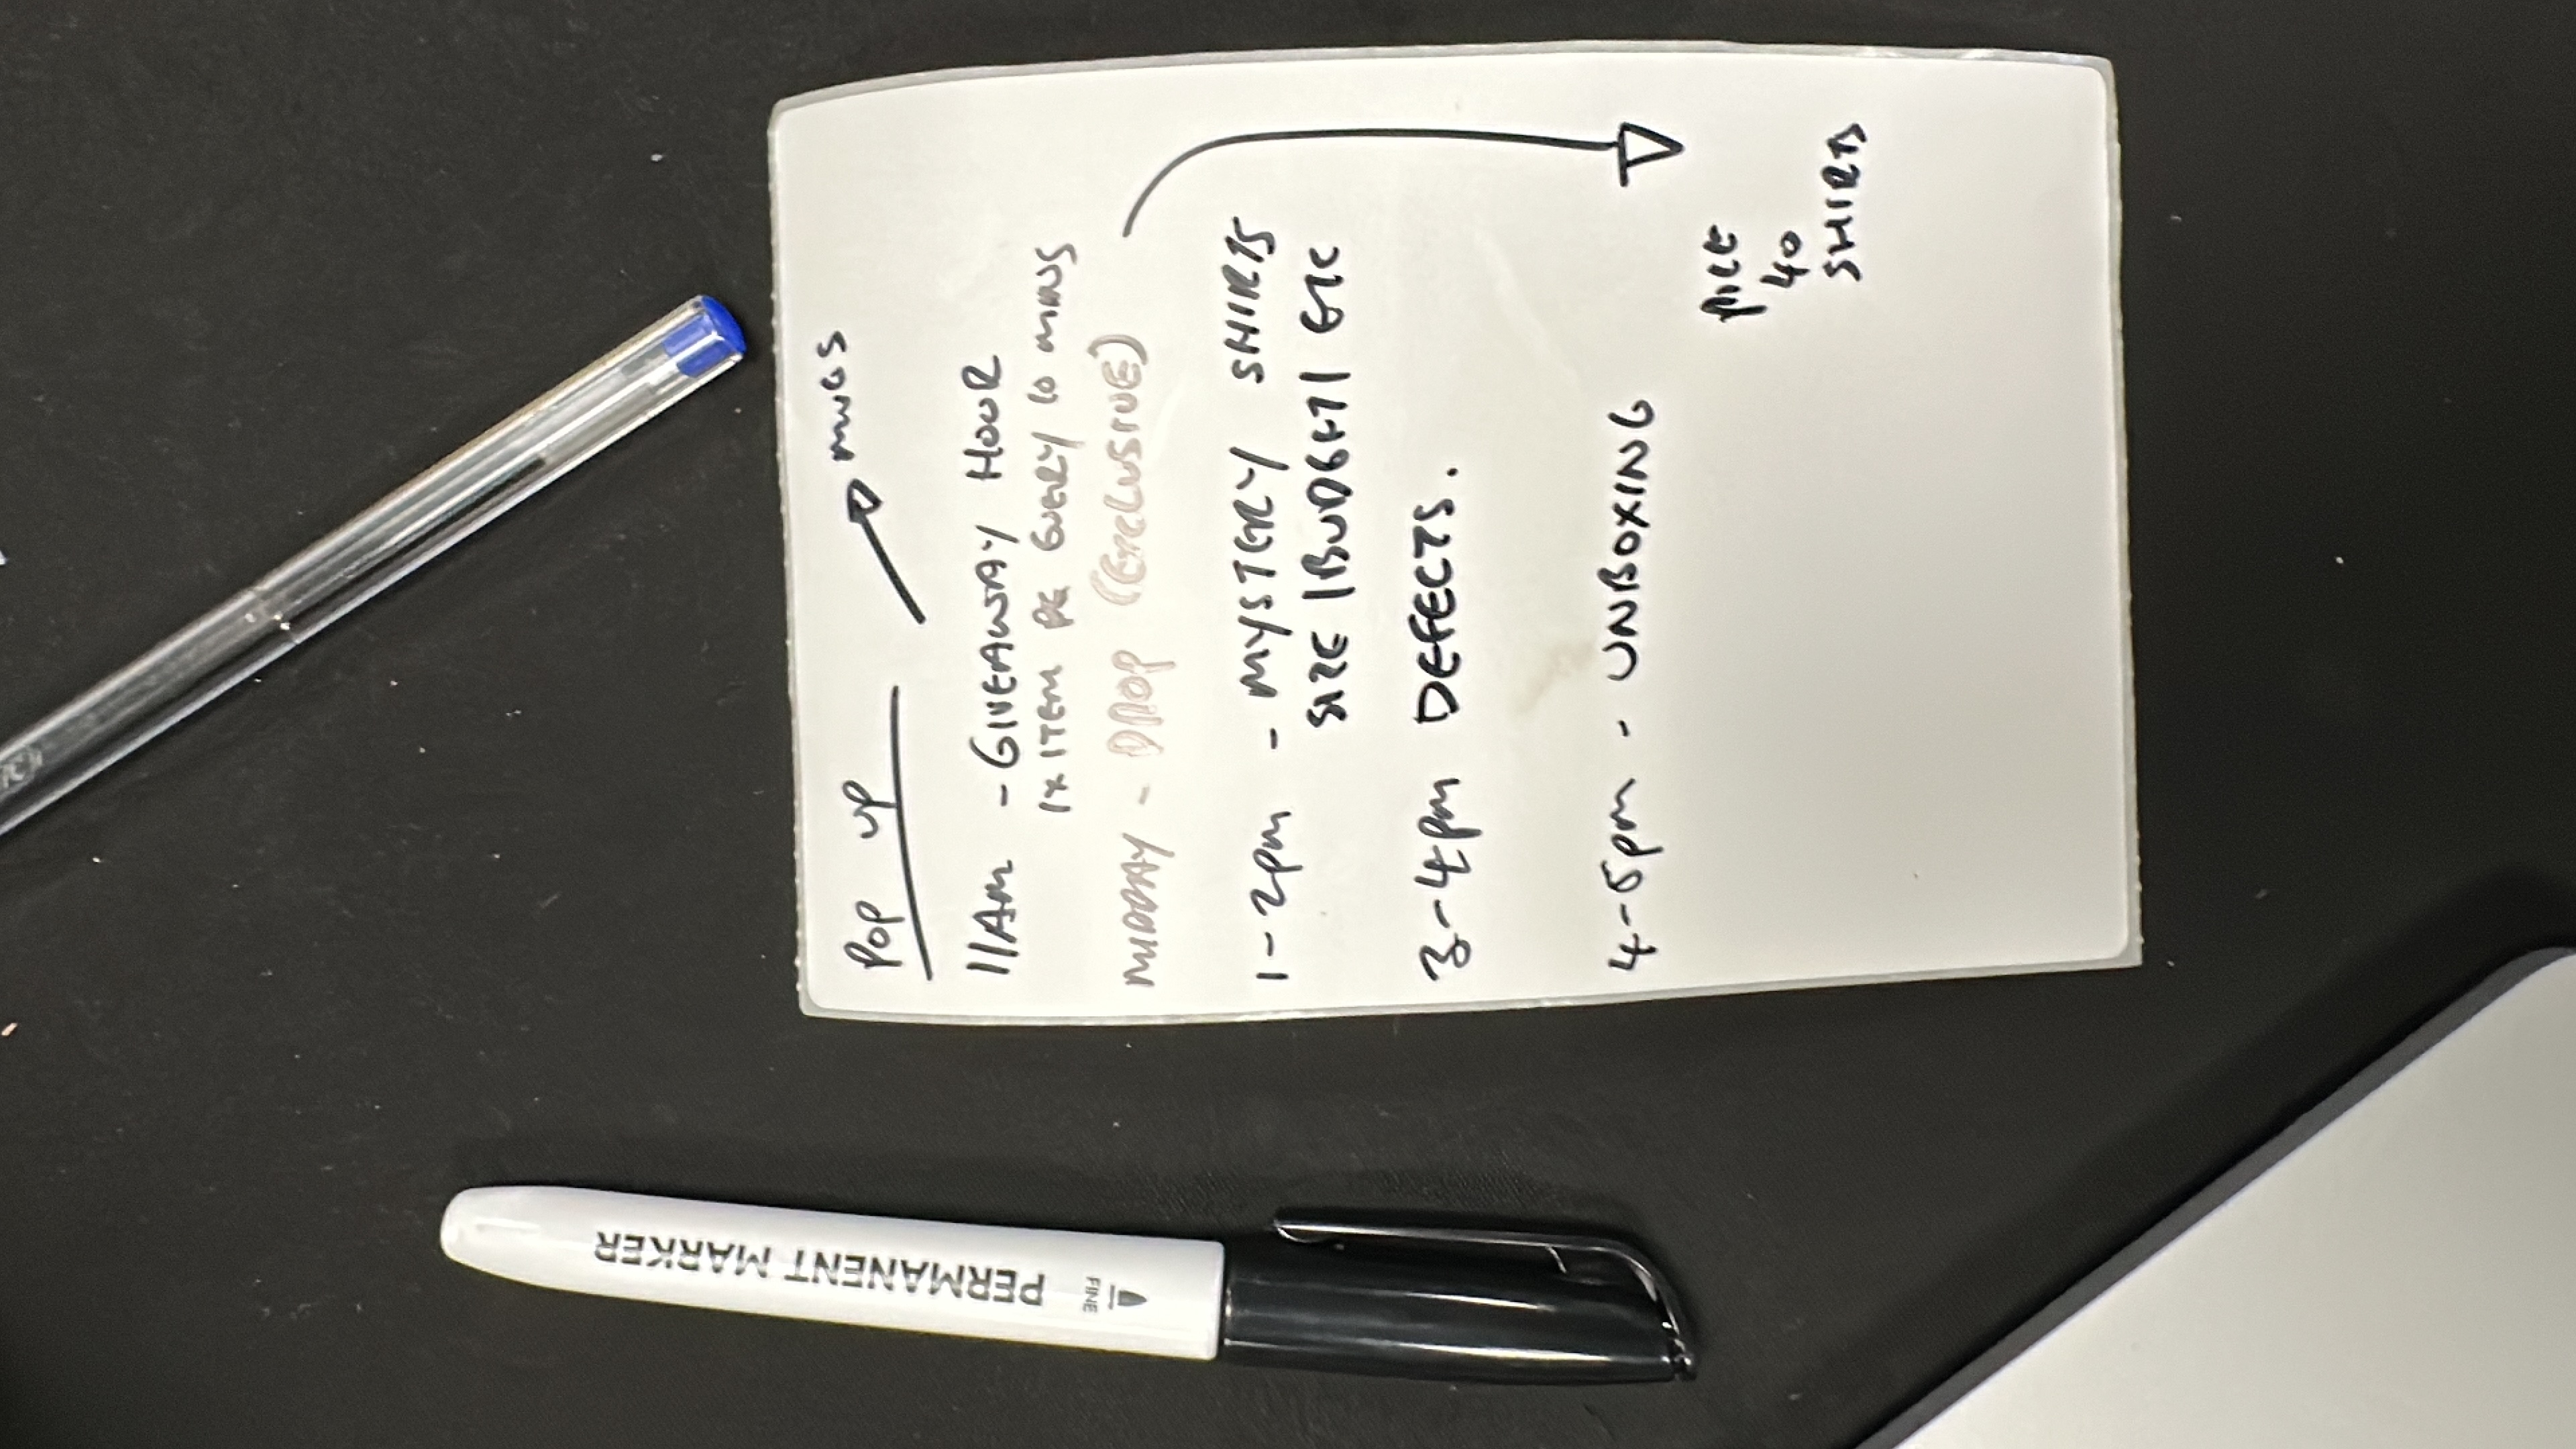 POP UP
MUGS
11AM - GIVEAWAY HOUR
1X ITEM PE EVERY 10 MINS
MIDDAY - DROP (EXCLUSIVE)
1-2pm - MYSTERY SHIRTS
SIZE / BUDGET / ETC
3-4pm DEFECTS.
4-5pm - UNBOXING
40
SHIRTS
PERMANENT MARKER
FINE